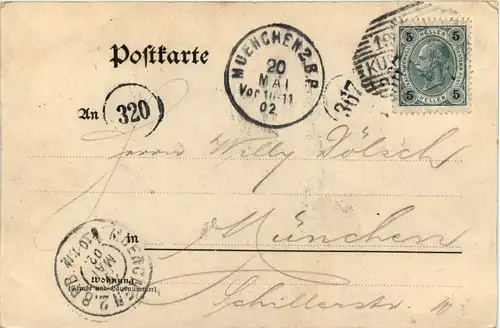 Postkarte
MUENCHEN 2. B.P.
20
MAI
Vor 10-11
02
5 5
HELLER HELLER
5 5
367
An 320
Herrn Willy Dölsch
in München
Wohnung
(Straße und Hausnummer)
Schillerstr.
MUENCHEN 2. B.P.
MAI
02